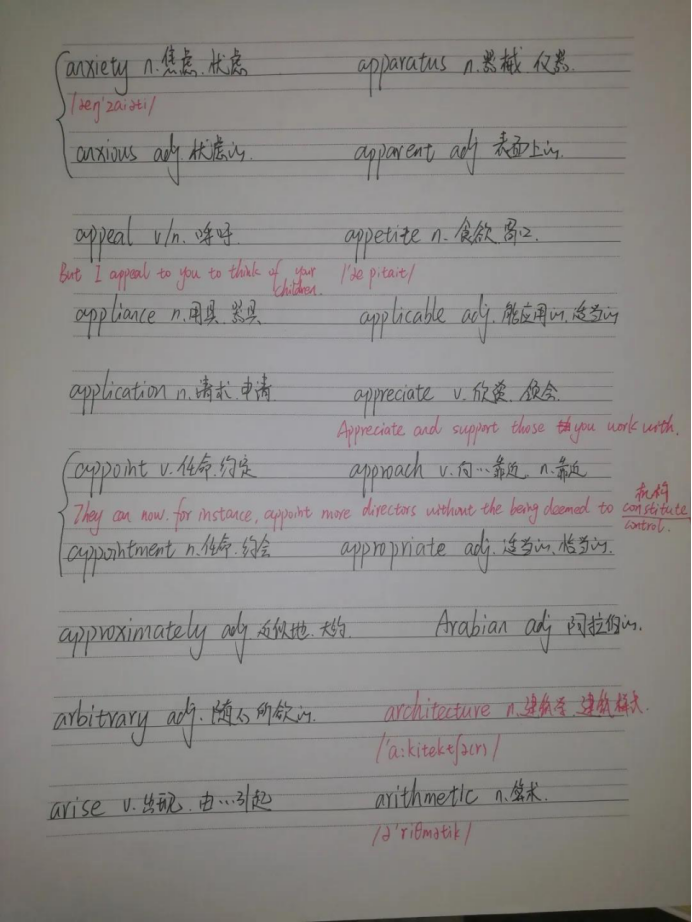 anxiety n.焦虑.忧虑 apparatus n.器械.仪器.
/æŋ'zaiəti/
anxious adj 忧虑的. apparent adj 表面上的.
appeal v/n. 呼吁 appetite n. 食欲.胃口.
But I appeal to you to think of your children. /'æpitait/
appliance n.用具.器具 applicable adj. 能应用的.适当的
application n.请求.申请 appreciate v. 欣赏.领会.
Appreciate and support those you work with.
appoint v.任命.约定 approach v.向…靠近 n.靠近
They can now. for instance, appoint more directors without the being deemed to constitute control.
机构
appointment n.任命.约会 appropriate adj.适当的.恰当的.
approximately adj 近似地.大约. Arabian adj 阿拉伯的.
arbitrary adj. 随心所欲的. architecture n.建筑学.建筑样式.
arise v.出现.由…引起 arithmetic n.算术.
/ə'riθmətik/